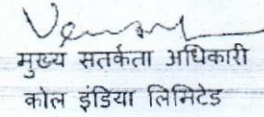 मुख्य सतर्कता अधिकारी
कोल इंडिया लिमिटेड